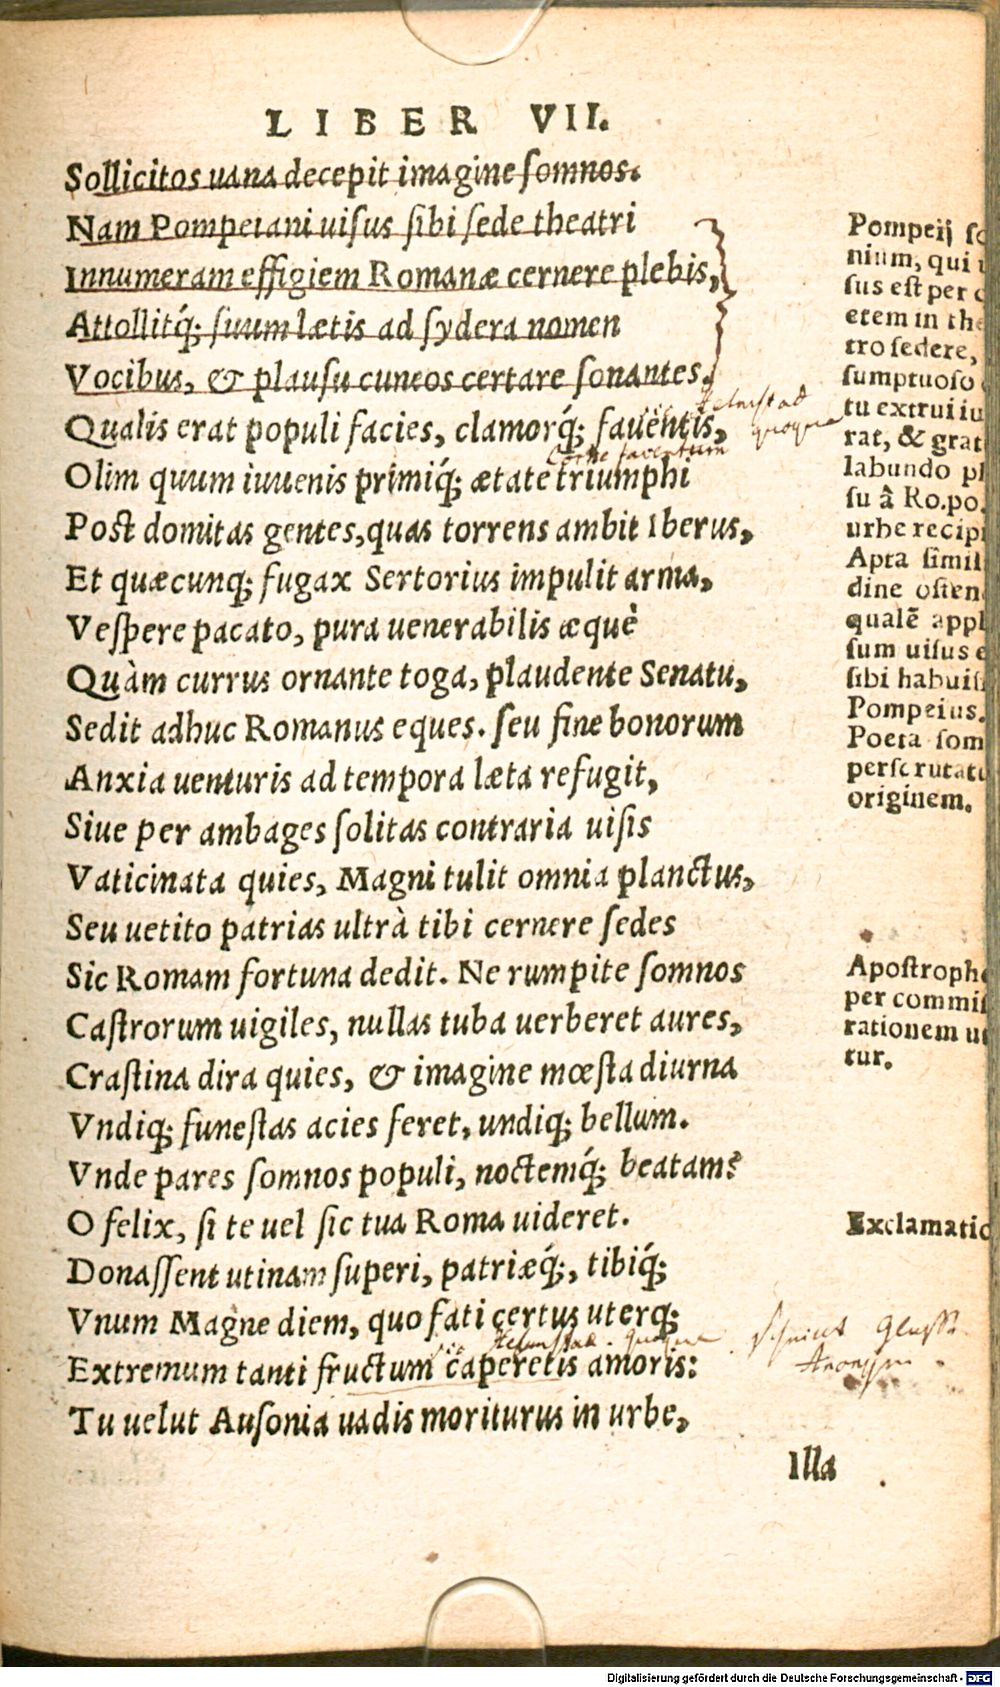 LIBER VII.
Sollicitos uana decepit imagine somnos.
Nam Pompeiani uisus sibi sede theatri
Innumeram effigiem Romanæ cernere plebis,
Attollitq́; suum lætis ad sydera nomen
Vocibus, & plausu cuneos certare sonantes.
Qualis erat populi facies, clamorq́; fauentis,
Olim quum iuuenis primiq́; ætate triumphi
Post domitas gentes, quas torrens ambit Iberus,
Et quæcunq; fugax Sertorius impulit arma,
Vespere pacato, pura uenerabilis æquè
Quàm currus ornante toga, plaudente Senatu,
Sedit adhuc Romanus eques. seu fine bonorum
Anxia uenturis ad tempora læta refugit,
Siue per ambages solitas contraria uisis
Vaticinata quies, Magni tulit omnia planctus,
Seu uetito patrias ultrà tibi cernere sedes
Sic Romam fortuna dedit. Ne rumpite somnos
Castrorum uigiles, nullas tuba uerberet aures,
Crastina dira quies, & imagine mœsta diurna
Vndiq; funestas acies feret, undiq; bellum.
Vnde pares somnos populi, noctemq́; beatam?
O felix, si te uel sic tua Roma uideret.
Donassent utinam superi, patriæq́;, tibiq́;
Vnum Magne diem, quo fati certus uterq;
Extremum tanti fructum caperetis amoris:
Tu uelut Ausonia uadis moriturus in urbe,
Illa
Pompeij so
nium, qui
sus est per
etem in the
tro sedere,
sumptuoso
tu extrui iu
rat, & grat
labundo pl
su â Ro.po.
urbe recipi
Apta simil
dine osten
qualẽ appl
sum uisus e
sibi habuis
Pompeius.
Poeta som
perscrutat
originem.
Apostrophe
per commis
rationem ut
tur.
Exclamatio
Helmstad
quoque
Helmstad. quoque
Gloss.
Anonym
Digitalisierung gefördert durch die Deutsche Forschungsgemeinschaft - DFG